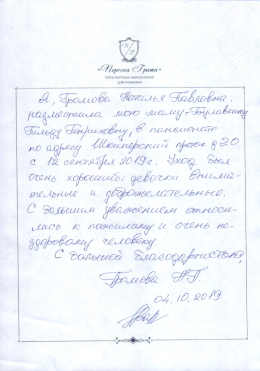 "Перспектива"
Я, Громова Наталья Павловна,
разместила мою маму -
Гильду Генриховну, в пансионате
по адресу Шкиперский проток д 20
с 12 сентября 2019 г. Уход был
очень хороший: девочки внима-
тельные и доброжелательные.
С большим уважением относи-
лись к пожилому и очень не-
здоровому человеку.
С большой благодарностью,
Громова Н.П.
04.10.2019